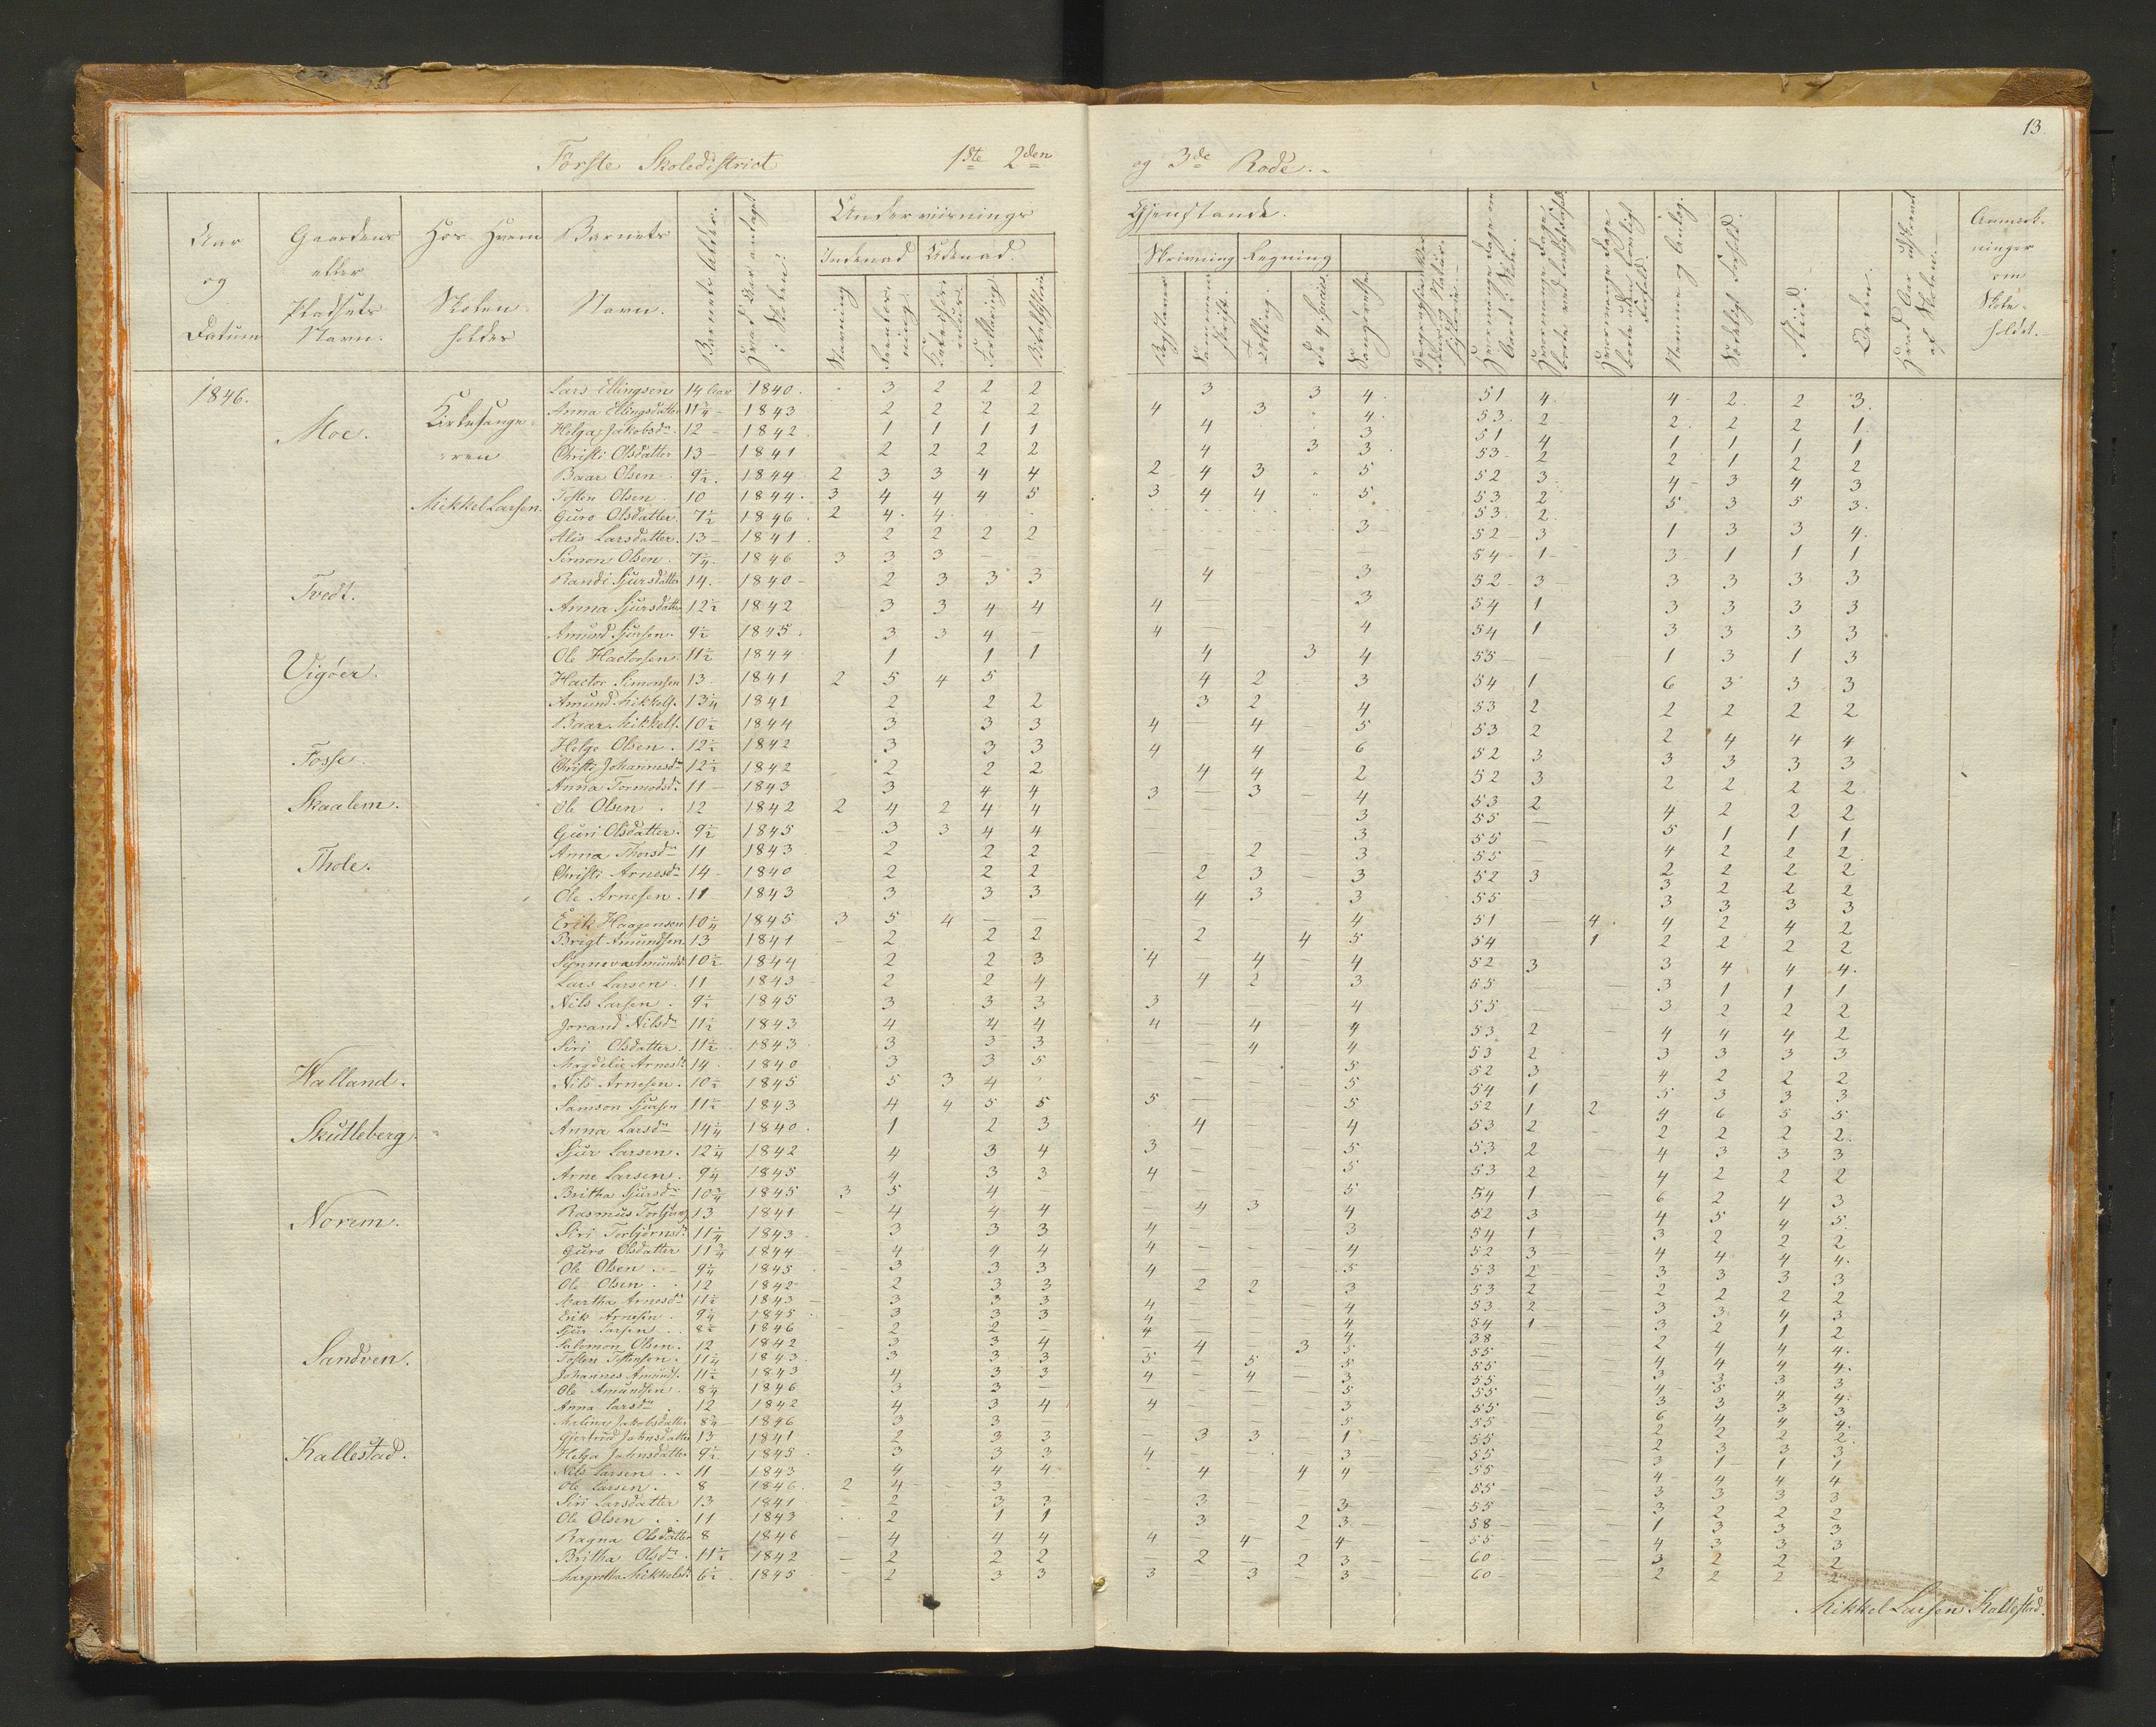 13.
Første Skoledistrict 1ste 2den og 3de Rode.
Aar og Datum
Gaardens eller Pladsets Navn.
Hos Hvem Skolen holdes
Barnets Navn.
Barnets Alder.
Hvad Aar antaget i Skolen?
Underviisnings Gjenstande.
Indenad Udenad.
Skrivning Regning
Stavning
Forklaring
Bogstaver
Sammenskrift.
Sangøvelse
Flid.
Orden.
Hvad Aar udskrevet af Skolen.
Anmærkninger om Skoleholdet.
1846. Moe. Kirkesangeren Lars Ellingsen 14 Aar 1840. 3 2 2 2 3 3 4 51 4 4 2 2 3
Anna Ellingsdatter 11 3/4 1843 2 2 2 2 4 3 4 53 2 2 2 2 1
Helga Jakobsdr. 12 1842 1 1 1 1 4 3 51 4 1 1 1 1
Christi Olsdatter 13 1841 2 2 2 2 4 3 3 53 2 2 1 2 2
Baar Olsen 9 1/2 1844 2 3 3 4 4 2 4 3 5 52 3 4 3 4 3
Mikkel Larsen. Tosten Olsen 10 1844 3 4 4 4 5 3 4 4 5 53 2 5 3 5 3
Guro Olsdatter 7 1/2 1846 2 4 4 53 2
Alis Larsdatter 13 1841 2 2 2 2 3 52 3 1 3 3 4
Simon Olsen 7 1/4 1846 3 3 3 54 1 3 1 1 1
Tvedt. Randi Sjursdatter 14 1840 2 3 3 3 4 3 52 3 3 3 3 3
Anna Sjursdatter 12 1/2 1842 3 3 4 4 4 3 54 1 3 3 3 3
Amund Sjursen 9 1/2 1845 3 3 4 4 4 54 1 3 3 3 3
Vigøer. Ole Hactorsen 11 1/2 1844 1 1 1 4 3 4 55 1 3 1 3
Hactor Simonsen 13 1841 2 5 4 5 4 2 3 54 1 6 3 3 3
Amund Mikkels. 13 1/4 1841 2 2 2 3 2 4 53 2 2 2 2 2
Baar Mikkels. 10 1/2 1844 3 3 3 4 4 5 53 2 2 4 4 4
Fosse. Helge Olsen 12 1/2 1842 3 3 3 4 4 6 52 3 3 3 3 3
Christi Johannesdr 12 1/2 1842 2 2 2 4 4 2 52 3 2 2 2 2
Anna Tormodsdr. 11 1843 3 4 4 3 3 4 53 2 4 2 2 2
Skaalem. Ole Olsen 12 1842 2 4 2 4 4 3 55 5 1 1 1
Guri Olsdatter 9 1/2 1845 3 3 4 4 3 55 4 2 2 2
Thole. Anna Thorsdr 11 1843 2 2 2 2 3 55 2 2 2 2
Christi Arnesdr 14 1840 2 2 2 2 3 3 52 3 3 2 2 2
Ole Arnesen 11 1843 3 3 3 4 3 3 55 3 3 3 3
Erik Haagensen 10 1/4 1845 3 5 4 4 51 4 4 2 4 2
Brigt Amundsen 13 1841 2 2 2 2 4 5 54 1 2 2 2 2
Synneva Amundsd. 10 1/2 1844 2 2 3 4 4 4 52 3 3 4 4 4
Lars Larsen 11 1843 2 2 4 4 2 3 55 3 1 1 1
Nils Larsen 9 1/2 1845 3 3 3 3 4 55 3 2 2 2
Jorand Nilsdr 11 1/2 1843 4 4 4 4 4 4 53 2 4 4 4 2
Siri Olsdatter 11 1/2 1843 3 3 3 4 4 53 2 3 3 3 3
Magdeli Arnesd. 14 1840 3 3 5 5 52 3 4 2 2 2
Halland. Nils Arnesen 10 1/2 1845 5 3 4 5 54 1 5 3 3 3
Samson Sjursen 11 1/2 1843 4 4 5 5 5 5 52 1 2 4 6 5 5
Skutleberg. Anna Larsdr 14 1/4 1840 1 2 3 4 4 53 2 2 2 2 2
Sjur Larsen 12 1/4 1842 4 3 4 3 5 53 2 4 3 3 3
Arne Larsen 9 1/4 1845 4 3 3 4 5 53 2 4 2 2 2
Britha Sjursdr 10 3/4 1845 3 5 4 5 54 1 6 2 4 3
Norem. Rasmus Torbjørns. 13 1841 4 4 4 4 3 4 52 3 4 5 4 5
Siri Torbjørnsd. 11 1/4 1843 3 3 3 4 3 54 1 3 2 2 2
Guro Olsdatter 11 3/4 1844 4 4 4 4 4 52 3 4 4 4 4
Ole Olsen 9 1/4 1845 3 3 3 4 5 53 2 3 3 3 3
Ole Olsen 12 1842 2 3 3 2 2 3 53 2 2 2 2 2
Martha Arnesdr 11 1/2 1843 3 3 3 4 4 53 2 3 3 4 3
Erik Arnesen 9 1/4 1845 3 3 3 4 4 54 1 3 2 1 2
Sjur Larsen 8 1/2 1846 2 2 4 4 38
Sandven. Salomon Olsen 12 1842 3 3 4 4 3 5 55 2 4 4 4
Tosten Tostensen 11 1/4 1843 3 3 3 5 5 5 55 4 4 4 4
Johannes Amunds. 11 1/2 1843 4 3 3 4 4 3 55 3 3 3 3
Ole Amundsen 8 3/4 1846 3 3 5 55 4 5 4 4
Anna Larsdr 12 1842 4 3 4 4 3 55 3 3 3 3
Malina Jakobsdatter 8 3/4 1846 3 3 5 55 6 4 4 4
Kallestad. Gjertrud Johnsdatter 13 1841 2 3 3 3 3 1 55 2 2 2 2
Helga Johnsdatter 9 1/2 1845 3 3 3 4 3 55 2 3 3 3
Nils Larsen 11 1843 4 4 4 4 4 4 55 3 1 1 1
Ole Larsen 8 1846 2 4 3 55 4 4 4 4
Siri Larsdatter 13 1841 2 3 3 3 3 55 3 3 3 3
Ole Olsen 11 1843 2 1 1 3 2 3 58 3 2 2 2
Ragna Olsdatter 8 1846 4 4 4 4 4 4 55 1 3 3 3
Britha Olsdr 11 1/2 1842 2 2 2 2 2 3 60 4 3 3 3
Margretha Mikkelsd. 6 1/2 1845 2 3 3 3 3 3 60 2 2 2 2
Mikkel Larsen Kallestad.